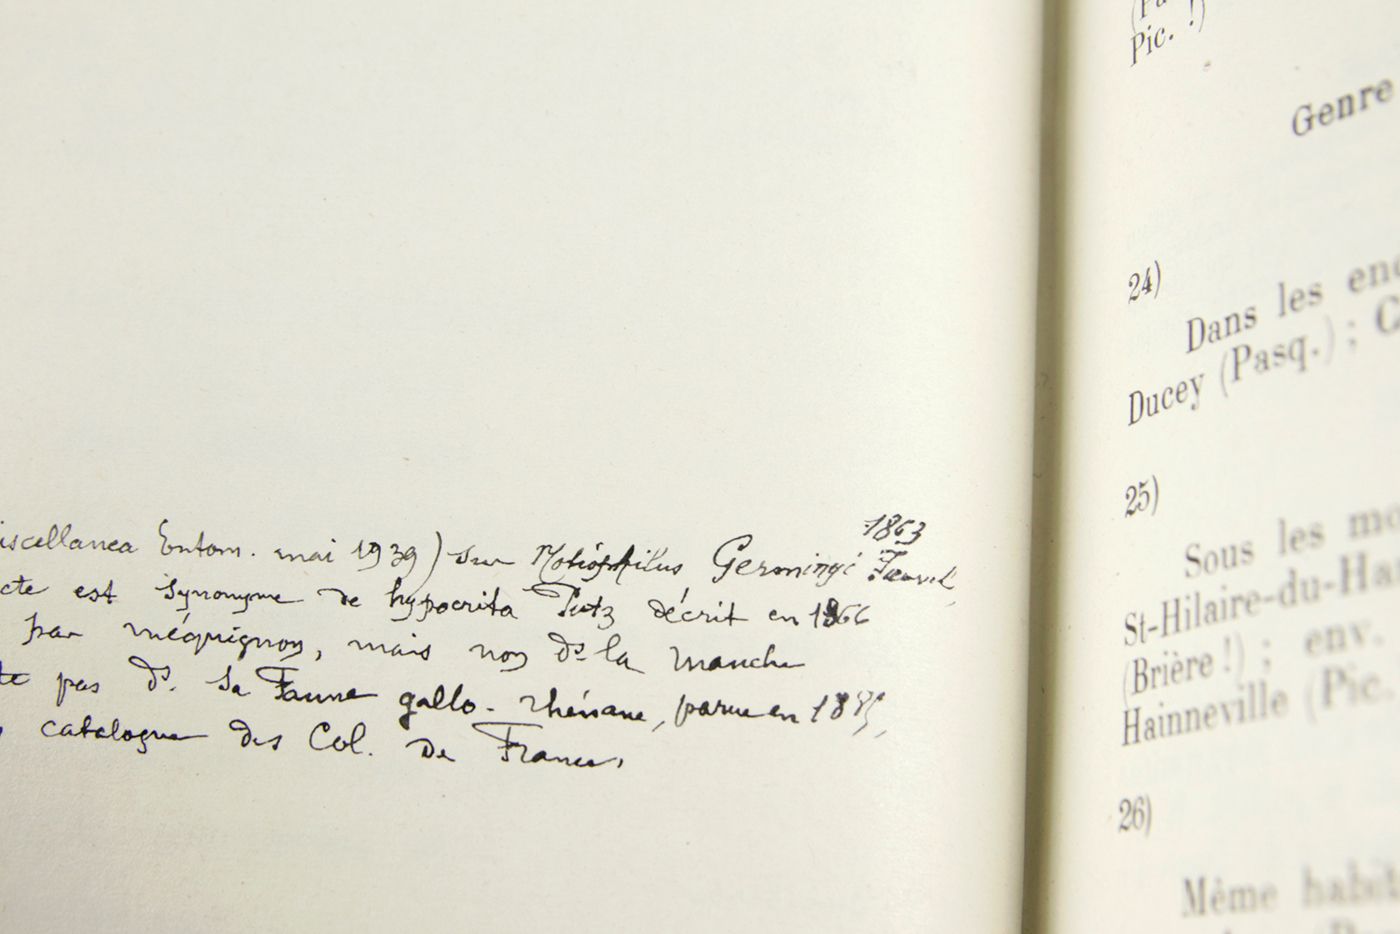 iscellanea Entom. mai 1939) sur Notiophilus Germinyi Fauvel, 1863
cte est synonyme de hypocrita Putz décrit en 1866
par méquignon, mais non ds la manche
te pas ds. sa Faune gallo-rhénane, parue en 188
catalogue des Col. de France.
(Pa
Pic. !)
Genre
24)
Dans les end
Ducey (Pasq.) ; C
25)
Sous les mo
St-Hilaire-du-Har
(Brière !) ; env.
Hainneville (Pic.
26)
Même habit